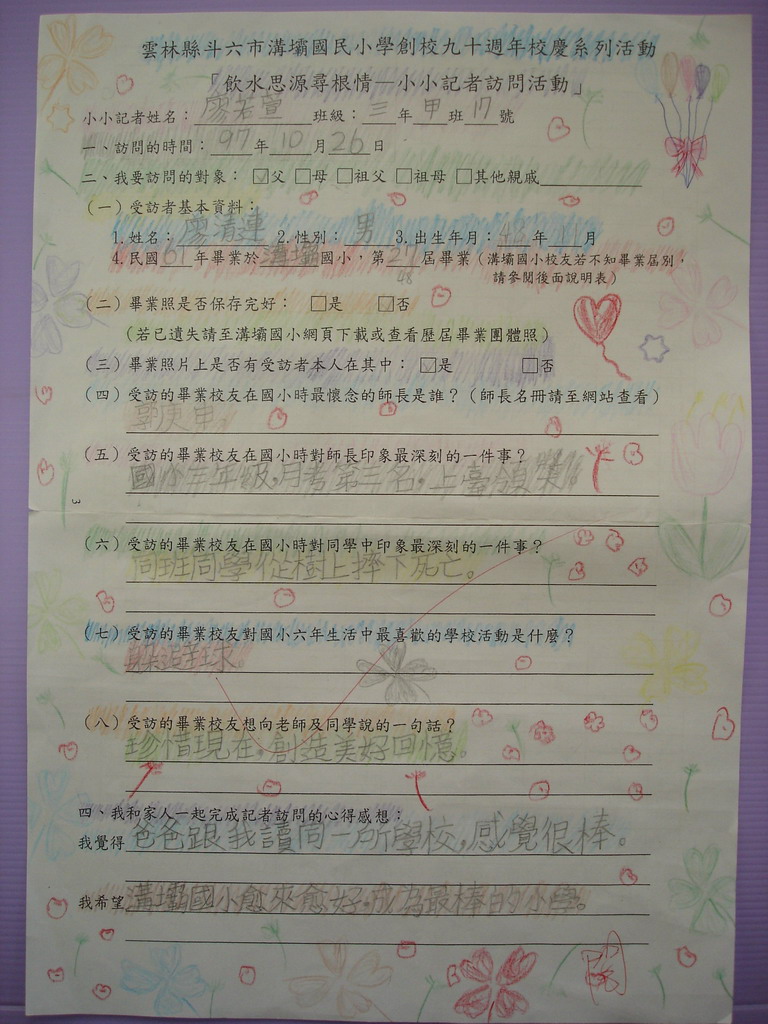 雲林縣斗六市溝壩國民小學創校九十週年校慶系列活動
「飲水思源尋根情—小小記者訪問活動」
小小記者姓名：廖若萱 班級：三年甲班17號
一、訪問的時間：97年10月26日
二、我要訪問的對象：☑父 □母 □祖父 □祖母 □其他親戚
（一）受訪者基本資料：
1.姓名：廖清連 2.性別：男 3.出生年月：48年 月
4.民國61年畢業於溝壩國小，第27屆畢業（溝壩國小校友若不知畢業屆別，
48 請參閱後面說明表）
（二）畢業照是否保存完好：□是 □否
（若已遺失請至溝壩國小網頁下載或查看歷屆畢業團體照）
（三）畢業照片上是否有受訪者本人在其中：☑是 □否
（四）受訪的畢業校友在國小時最懷念的師長是誰？（師長名冊請至網站查看）
郭庚申
（五）受訪的畢業校友在國小時對師長印象最深刻的一件事？
國小三年級，月考第三名，上臺領獎
3
（六）受訪的畢業校友在國小時對同學中印象最深刻的一件事？
同班同學從樹上摔下死亡。
（七）受訪的畢業校友對國小六年生活中最喜歡的學校活動是什麼？
躲避球
（八）受訪的畢業校友想向老師及同學說的一句話？
珍惜現在，創造美好回憶。
四、我和家人一起完成記者訪問的心得感想：
我覺得爸爸跟我讀同一所學校，感覺很棒。
我希望溝壩國小愈來愈好，成為最棒的小學。
閱